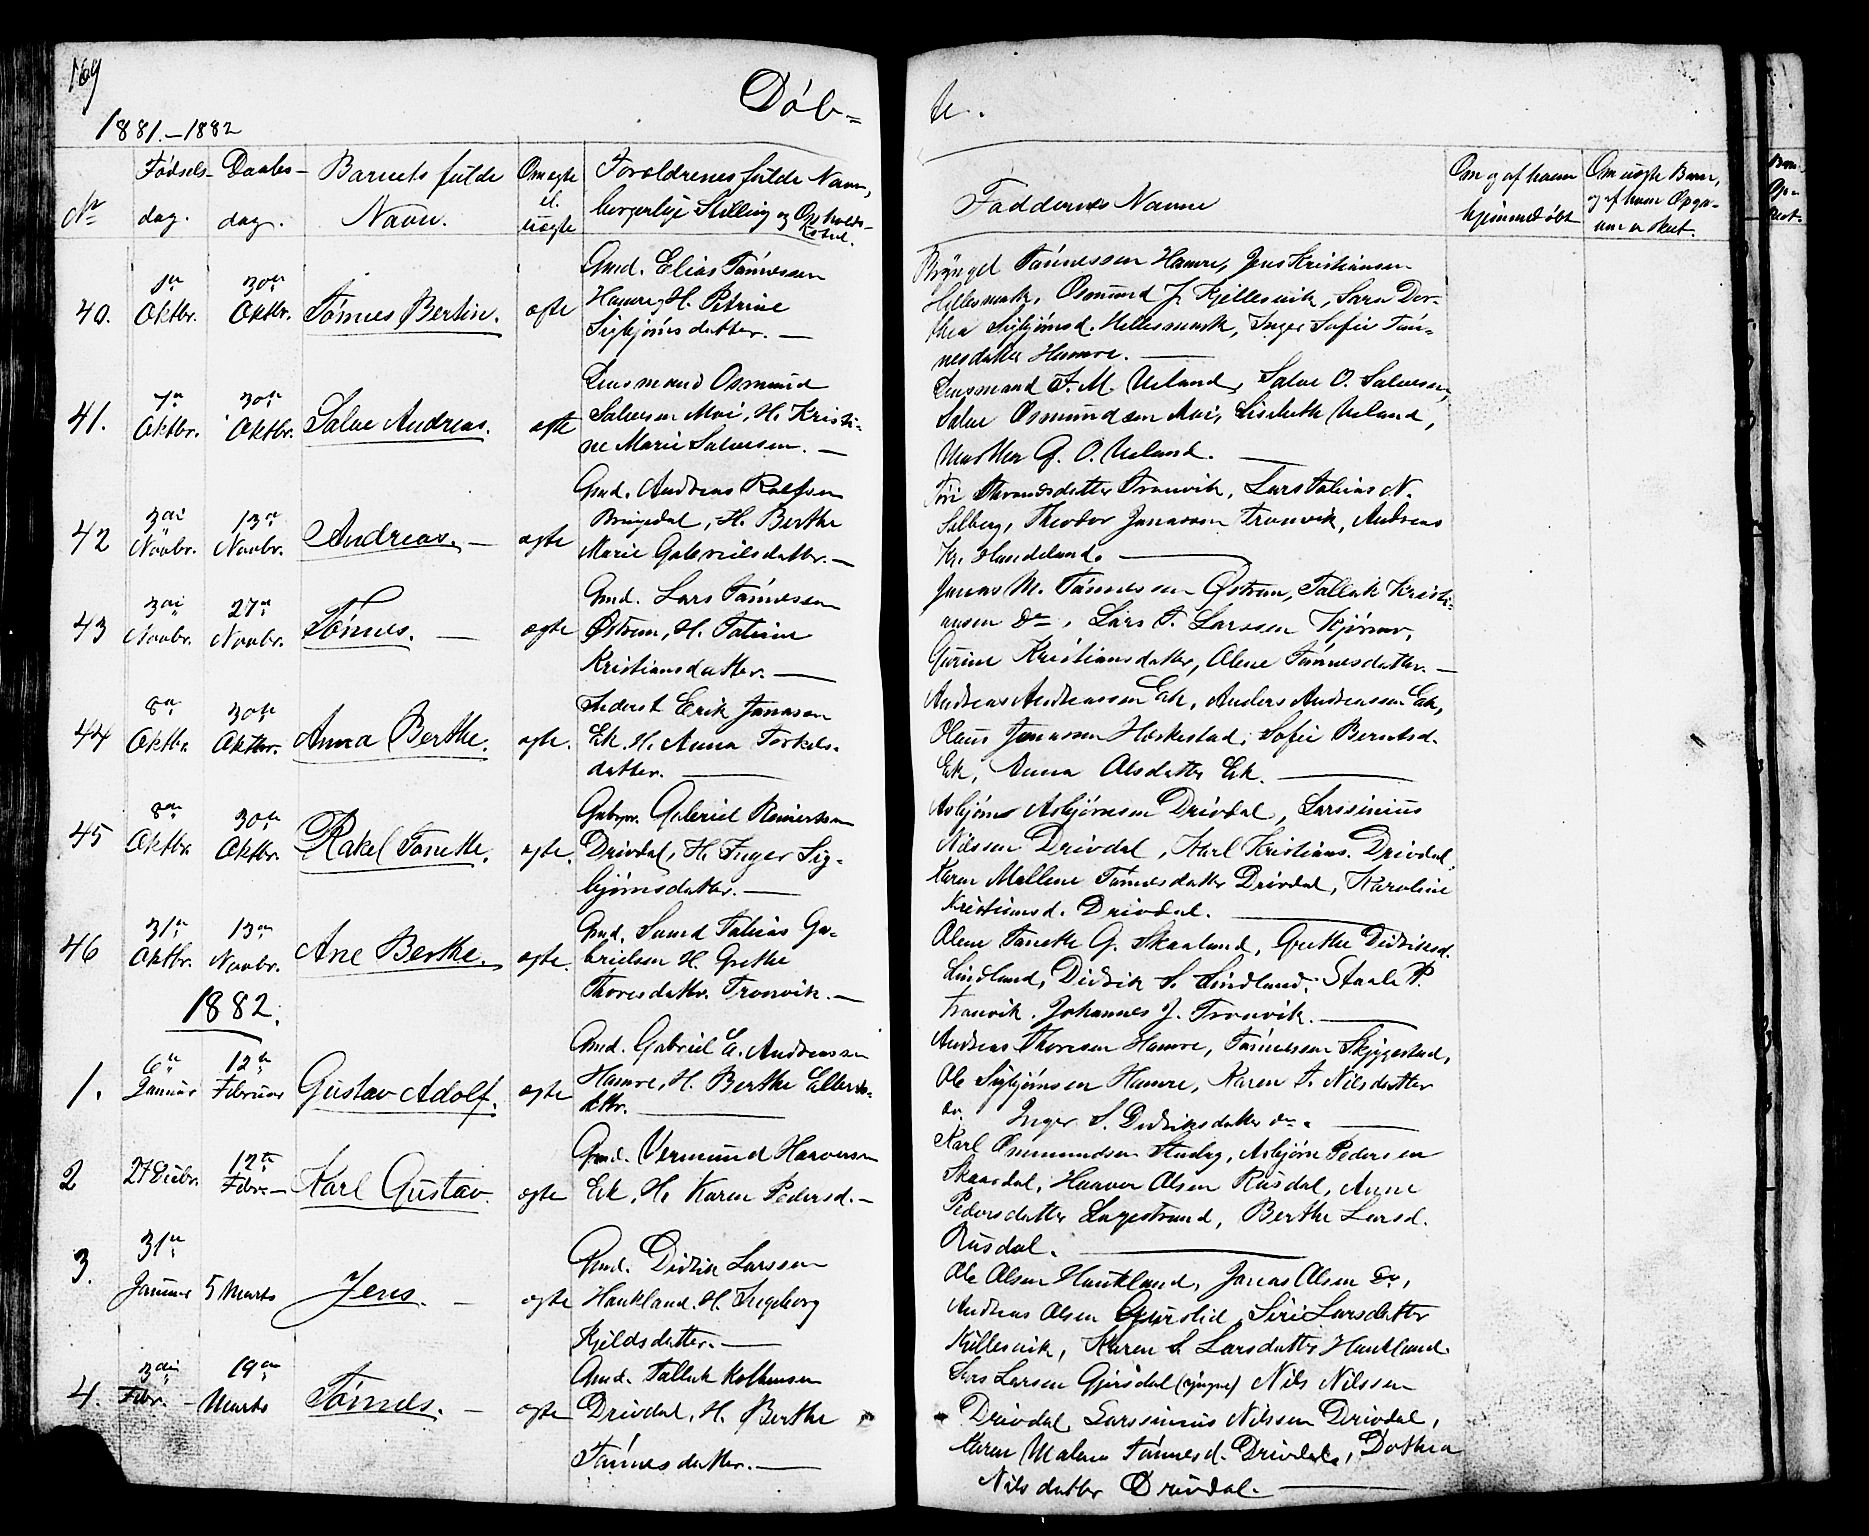 169
Døb=
te.
1881.-1882
No
Fødsels-
dag.
Daabs-
dag.
Barnets fulde
Navn.
Om ægte
el.
uægte
Forældrenes fulde Navn,
borgerlige Stilling og Opholds-
sted.
Faddernes Navne
Om og af hvem
hjemmedøbt
Om uægte Barn,
og af hvem Opga-
ven er skeet.
40.
1ste
Oktbr.
30te
Oktbr.
Tønnes Bertin.
ægte
Gmd. Elias Tønnessen
Hamre, H. Petrine
Sigbjørnsdatter. —
Tønnessen Hamre, Jens Kristiansen
Hellesmark, Osmund J. Kjellesvik, Sara Dor-
thea Sigbjørnsd. Hellesmark, Inger Sofie Tøn-
nesdatter Hamre. —
41.
7de
Oktbr.
30te
Oktbr.
Salve Andreas.
ægte
Lensmand Osmund
Salvesen Moi, H. Kristi-
ne Marie Salvesen. —
Lensmand T. M. Ueland, Salve O. Salvesen,
Salve Osmundsen Moi, Lisebeth Ueland,
Martha G. O. Ueland. —
42
3die
Novbr.
13de
Novbr.
Andreas. —
ægte
Gmd. Andreas Rolfsen
Bringedal, H. Berthe
Marie Gabrielsdatter. —
Tronvik, Lars Tobias N.
Selberg, Theodor Jonassen Tronvik, Andreas
Kr. Handeland. —
43
3die
Novbr.
27de
Novbr.
Tønnes. —
ægte
Gmd. Lars Tønnessen
Østrem, H. Taline
Kristiansdatter. —
Jonas M. Tønnessen Østrem, Tallak Kristi-
ansen do, Lars T. Larssen
Gurine Kristiansdatter, Olene Tønnesdatter. —
44
8de
Oktbr.
30te
Oktbr.
Anna Berthe.
ægte.
Inderst Erik Jonasen
Eik. H. Anna Torkels-
datter. —
Andreas Andreassen Eik, Anders Andreassen Eik,
Olaus Jonassen Heskestad, Sofie Berntsd.
Eik, Anna Olsdatter Eik. —
45
8de
Oktbr.
30te
Oktbr.
Rakel Tonette.
ægte.
Gabriel Reinertsen
Drivdal, H. Inger Sig-
bjørnsdatter. —
Asbjørn Asbjørnsen Drivdal, Larssinius
Nilssen Drivdal, Karl Kristians. Drivdal,
Karen Mallene Tønnesdatter Drivdal, Karoline
Kristiansd. Drivdal. —
46
31te
Oktbr.
13de
Novbr.
Ane Berthe.
ægte.
Gmd. Svend Tobias Ga-
brielsen H. Grethe
Thoresdatter Tronvik. —
Olene Tonette G. Skaaland, Grethe Didriksd.
Lindland, Didrik S. Lindland, Staale P.
Tronvik, Johannes J. Tronvik. —
1882.
1.
6te
Januar
12te
Februar
Gustav Adolf.
ægte
Gmd. Gabriel E. Andreassen
Hamre, H. Berthe
dttr. —
Andreas Thoresen Hamre, Tønnessen Skjeggestad,
Ole Sigbjørnsen Hamre, Karen T. Nilsdatter
do. Inger S. Didriksdatter do. —
2
27 Decbr.
12te
Febr. —
Karl Gustav.
ægte
Gmd. Vermund Haaversen
Eik, H. Karen Pedersd. —
Karl Ommundsen Asbjørn Pedersen
Skaardal, Haaver Olsen Rusdal, Anne
Pedersdatter Lagestrand, Berthe Larsd.
Rusdal. —
3.
31te
Januar
5 Marts
Jens. —
ægte
Gmd. Didrik Larssen
Haukland. H. Ingeborg
Kjeldsdatter. —
Ole Olsen Haukland, Jonas Olsen do,
Andreas Olsen Siri Larsdatter
Kjellesvik, Karen S. Larsdatter Haukland.
4.
3die
Febr. —
19de
Marts
Tønnes. —
ægte
Gmd. Tallak
Drivdal, H. Berthe
Tønnesdatter. —
Lars Larsen Gjersdal (yngre) Nils Nilssen
Drivdal, Larssinius Nilssen Drivdal,
Karen Malene Tønnesd. Drivdal, Dothea
Nilsdatter Drivdal. —